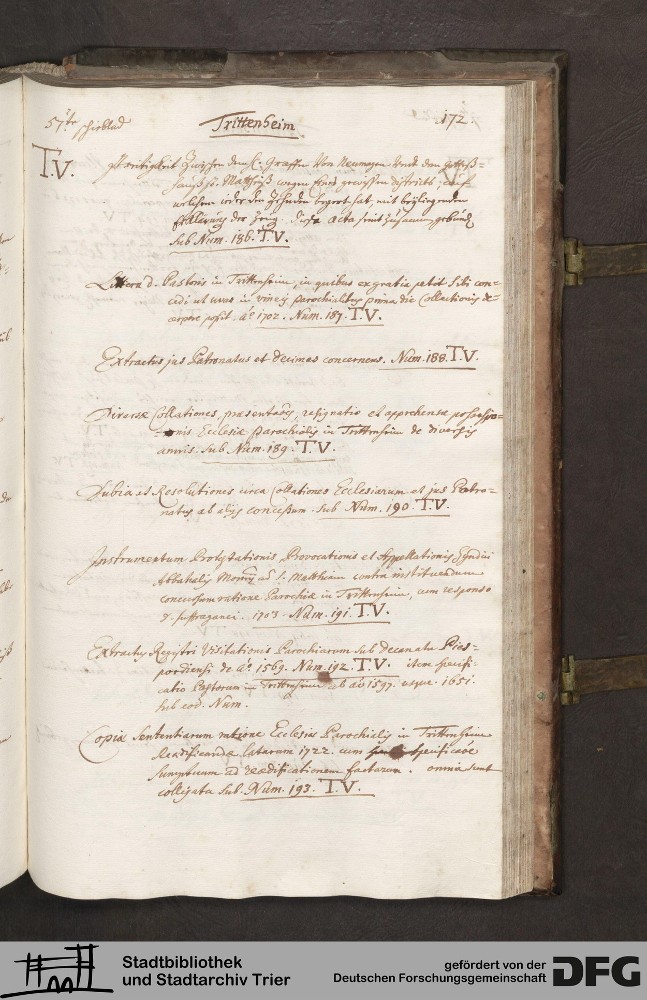 57te schieblad
Trittenheim
172.
T.V.
Streitigkeit zwischen dem H. Graffen Von Neumagen undt dem Gottes=
haus St. Matheis wegen eines gewissen districts, auf
welchem ieder den Zehnden begert hat, mit beyliegenden
der Zeug. Diese acta seint zusamen gebund
sub Num. 186. T.V.
Littera d. Pastoris in Trittenheim, in quibus ex gratia petit sibi con=
cedi ut uvas in vineis parochialibus prima die Collectionis de=
cerpere possit. aº 1702. Num. 187. T.V.
Extractus jus Patronatus et decimas concernens. Num. 188. T.V.
Diversæ Collationes, præsentaõis, resignatio et apprehensæ possessio=
nis Ecclesiæ parochialis in Trittenheim de diversis
annis. sub. Num. 189. T.V.
Dubia et Resolutiones circa Collationes Ecclesiarum et jus Patro=
natus ab alijs concessum. sub Num. 190. T.V.
Instrumentum Protestationis, Provocationis et Appellationis Syndici
Abbatialis Monrÿ ad S. Matthiam contra instituendum
concursum ratione Parochiæ in Trittenheim, cum responso
d. suffraganei. 1703. Num. 191. T.V.
Extractus Registri Visitationis Parochiarum sub decanatu Pies=
portensi de aº. 1569. Num. 192. T.V. item specifi=
catio Pastorum in Trittenheim ab aõ 1597. usque 1651.
sub eod. Num.
Copiæ sententiarum ratione Ecclesiæ Parochialis in Trittenheim
reædificandæ latarum 1722. cum specificaõe
sumptuum ad reædificationem factarum. omnia sunt
colligata sub. Num. 193. T.V.
Stadtbibliothek
und Stadtarchiv Trier
gefördert von der
Deutschen Forschungsgemeinschaft
DFG